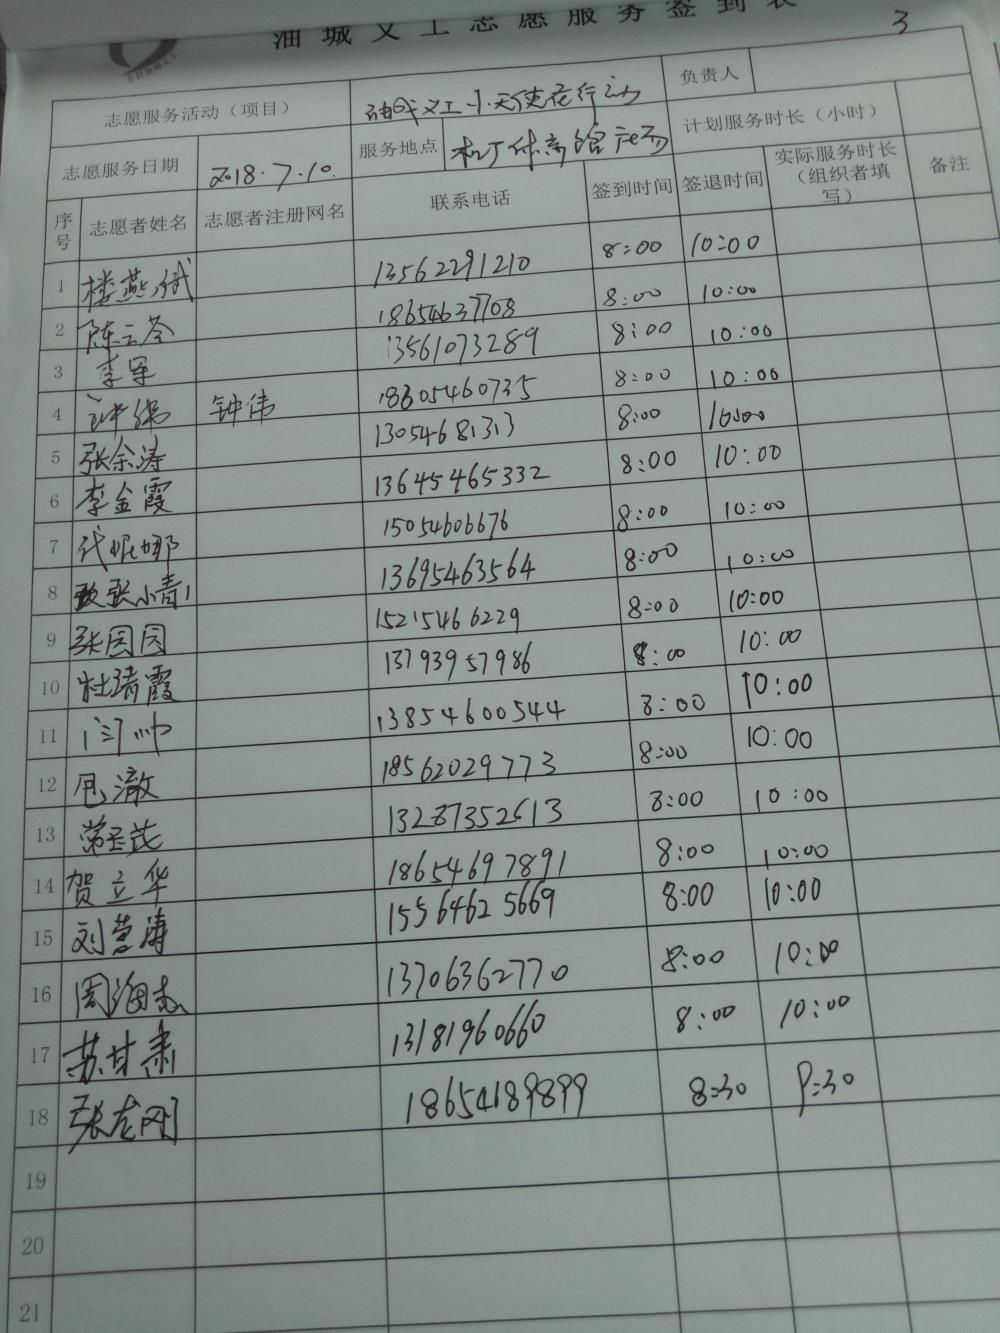 油城义工志愿服务签到表
3
志愿服务活动（项目） 油城义工小天使在行动 负责人
志愿服务日期 2018.7.10. 服务地点 机厂体育馆广场 计划服务时长（小时）
序号 志愿者姓名 志愿者注册网名 联系电话 签到时间 签退时间 实际服务时长（组织者填写） 备注
1 楼燕斌 13562291210 8:00 10:00
2 陈云苓 18654637708 8:00 10:00
3 李军 13561073289 8:00 10:00
4 钟伟 钟伟 18605460735 8:00 10:00
5 张余涛 13054681313 8:00 10:00
6 李金霞 13645465332 8:00 10:00
7 代妮娜 15054606676 8:00 10:00
8 张小青 13695463564 8:00 10:00
9 张园园 15215466229 8:00 10:00
10 杜瑞霞 13793957986 8:00 10:00
11 闫帅 13854600544 8:00 10:00
12 澈 18562029773 8:00 10:00
13 13287352613 8:00 10:00
14 贺立华 18654697891 8:00 10:00
15 刘营涛 15564625669 8:00 10:00
16 周海 13706362770 8:00 10:00
17 苏甘肃 13181960660 8:00 10:00
18 张龙刚 18654189899 8:30 9:30
19
20
21